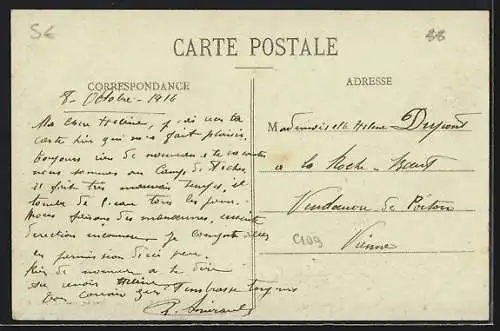 5€
88
CARTE POSTALE
CORRESPONDANCE
ADRESSE
8 - Octobre - 1916
Ma chère Hélène, j'ai reçu ta
carte hier qui m'a fait plaisir.
toujours rien de nouveau à te
nous sommes au Camp de
il fait très mauvais temps, il
tombe de l'eau tous les jours.
Nous faisons des manœuvres, ensuite
direction inconnue. Je compte aller
en permission d'ici peu.
Rien de nouveau à te dire
Au revoir Hélène
Ton cousin qui t'embrasse toujours
Mademoiselle Hélène Dupont
à la Roche
Vendeuvre de Poitou
Vienne
C109